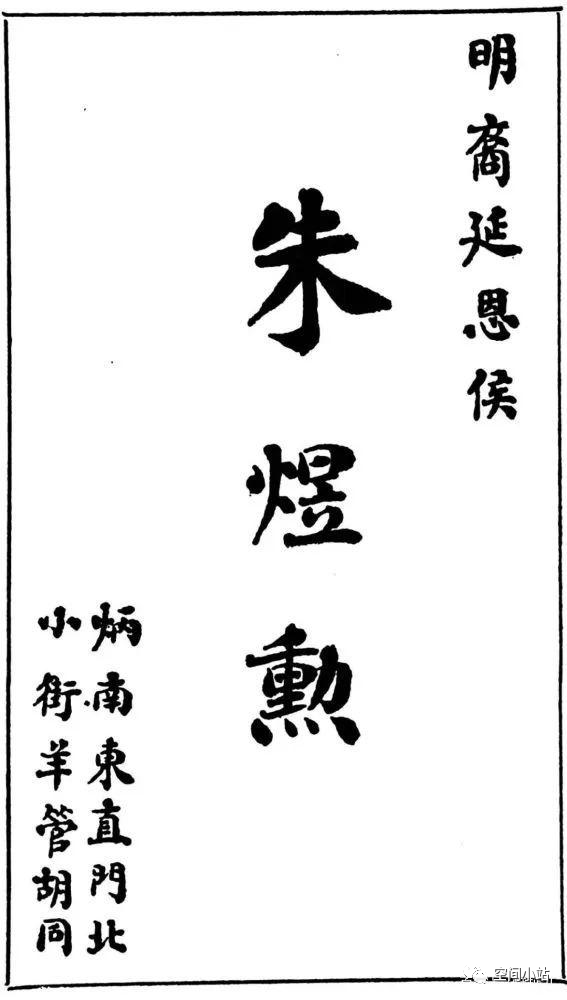 明裔延恩侯
朱煜勲
炳南東直門北
小街羊管胡同
空间小站